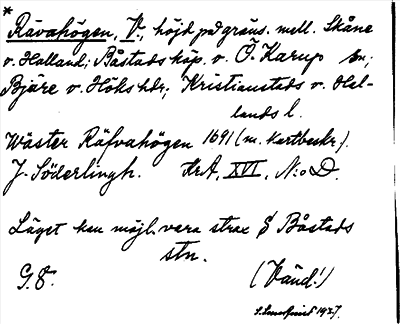 *
Rävahögen, V., höjd på gräns. mell. Skåne
o. Halland; Båstads köp. o. Ö. Karup sn;
Bjäre o. Höks hdr; Kristianstads o. Hal-
lands l.
Wäster Räfvahögen 1691 (m. kartbeskr.).
J. Söderlingh. KrA, XVI, N:o D.
Läget kan möjl. vara strax S Båstads
stn.
G. 8. (Vänd!)
1927.